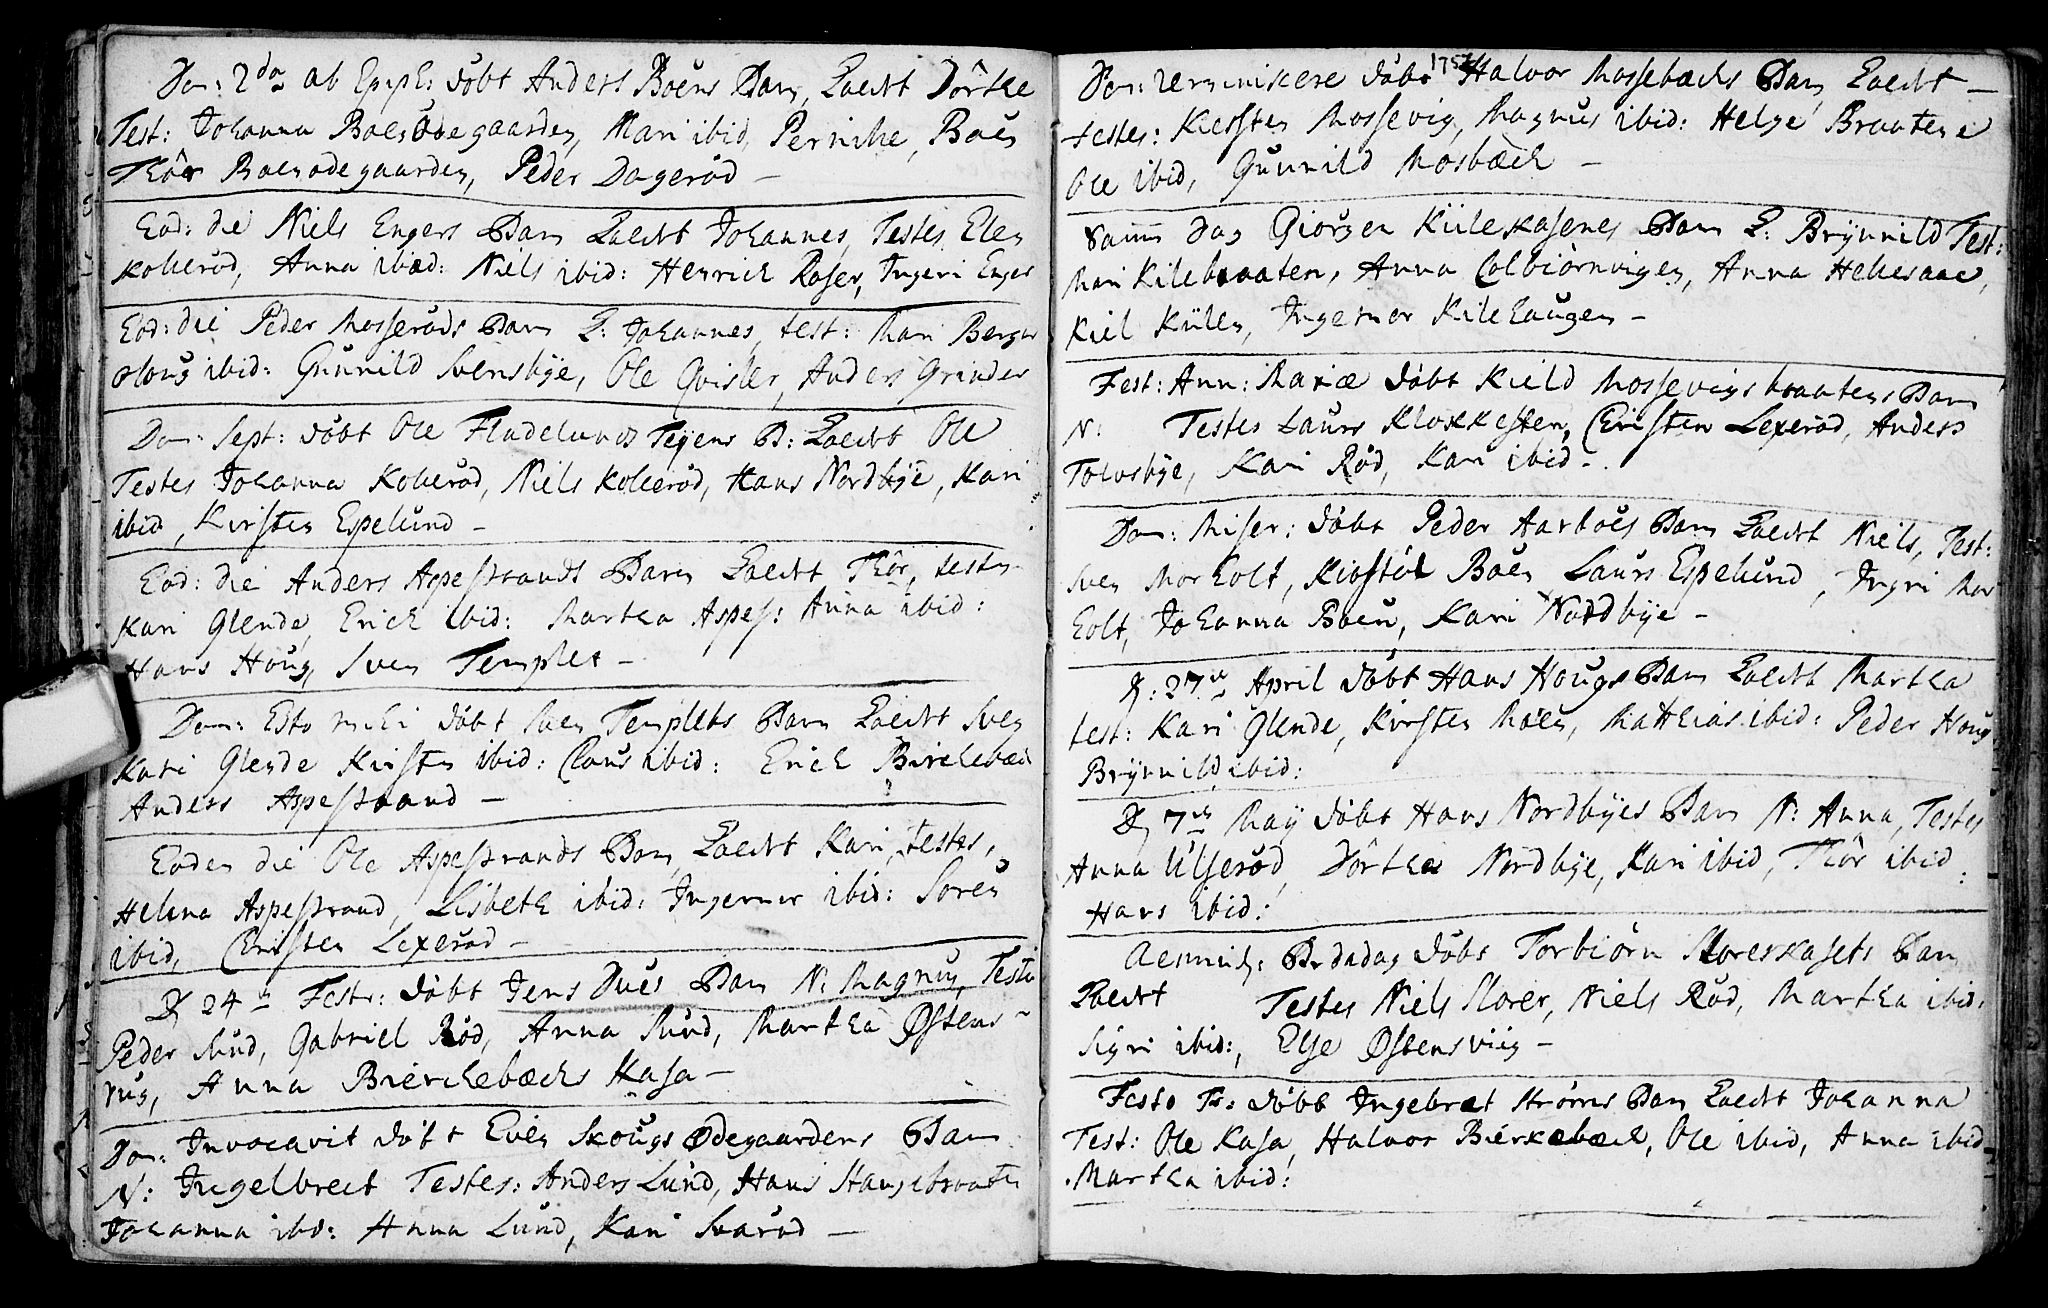 Dom: 2da ab Epiph: döbt Anders Boens Barn, kaldt Dörthe
Test: Johanna Boensödegaarden, Mari ibid, Pernihe, Boen
Thör Boensödegaarden, Peder Dageröd –
Eod: die Niels Engers Barn kaldt Johannes, Testes Elen
Kolleröd, Anna ibid: Niels ibid: Henrich Roser, Ingeri Enger
Eod: die Peder Mosseröds Barn k: Johannes, test: Mari Berger
oloug ibid: Gunnild Svensbye, Ole Qvisler, Anders Grinder
Dom: Sept: döbt Ole Fladelunds Teyens B: kaldt Ole
Testes Johanna Kolleröd, Niels Kolleröd, Hans Nordbye, Kari
ibid, Kirsten Espelund –
Eod: die Anders Aspestrands Barn kaldt Thör, testes
Kari Glende, Erich ibid: Martha Aspes: Anna ibid:
Hans Houg, Sven Templet –
Dom: Esto mihi döbt Sven Templets Barn kaldt Sven
Kari Glende Kirsten ibid: Claus ibid: Erich Birchebæch
Anders Aspestrand –
Eodem die Ole Aspestrands Barn, kaldt Kari, testes,
Helena Aspestrand, Lisbeth ibid: Ingemor ibid: Sören
ibid, Christen Lexeröd –
D 24de Febr: döbt Jens Dues Barn N: Magnus, Testes
Peder Mud, Gabriel Röd, Anna Mud, Martha Østens-
rug, Anna Bierchebæchs Hasa –
Dom: Invocavit döbt Even Skougs Ødegaardens Barn
N: Ingelbrect Testes: Anders Lund, Hans Haugebraaten
Johanna ibd: Anna Lund, Kari Svaröd –
1754
Dom: Reminiscere döbt Halvor Mossebæchs Barn, kaldt –
testes: Kirsten Mossevig, Magnus ibid: Helge Braatene
Ole ibid, Gunnild Mosbæch –
Samm Dag Giorgen Kiilekasenes Barn k: Brynnild Test:
Mari Kilebraaten, Anna Colbiörnvigen, Anna Hellesaae,
Kiel Kiilen, Ingemor Kilehaugen –
Fest: Ann: Mariæ döbt Kield Mossevigsbraatens Barn
N: Testes Laurs Klokkesten, Christen Lexeröd, Anders
Tolvsbye, Kari Röd, Kari ibid –
Dom: Miser: döbt Peder Harboes Barn kaldt Niels, Test:
Sven Morholt, Kirstöl Boen Laurs Espelund, Ingri Mor
holt, Johanna Boen, Kari Nordbye –
D: 27de April döbt Hans Hougs Barn kaldt Martha
test: Kari Glende, Kirsten Moen, Mathias ibid: Peder Houg
Brynnild ibid:
D 7de May döbt Hans Nordbyes Barn N: Anna, Testes
Anna Ulseröd, Dörthe Nordbye, Kari ibid, Thör ibid
Hans ibid:
Almind: Bededag döbt Torbiörn Moreskasets Barn
kaldt Testes Niels Morer, Niels Röd, Martha ibid:
Sigri ibid:, Else Østensviig –
Festo Tr: döbt Ingebret Ströms Barn kaldt Johanna
Test: Ole Kasa, Halvor Bierkebæch, Ole ibid, Anna ibid
Martha ibid: